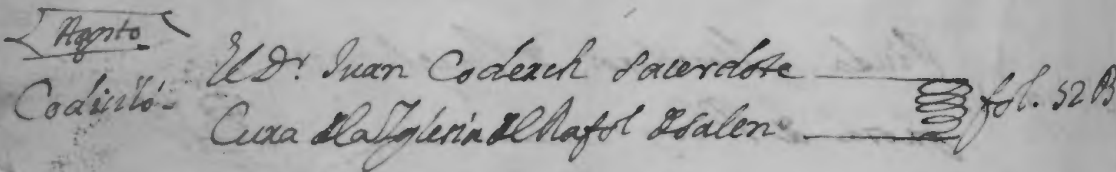 Agosto
Codicilo -
El Dr. Juan Codexch Sacerdote
Cura de la Yglesia del Rafol de salen
fol. 52 B